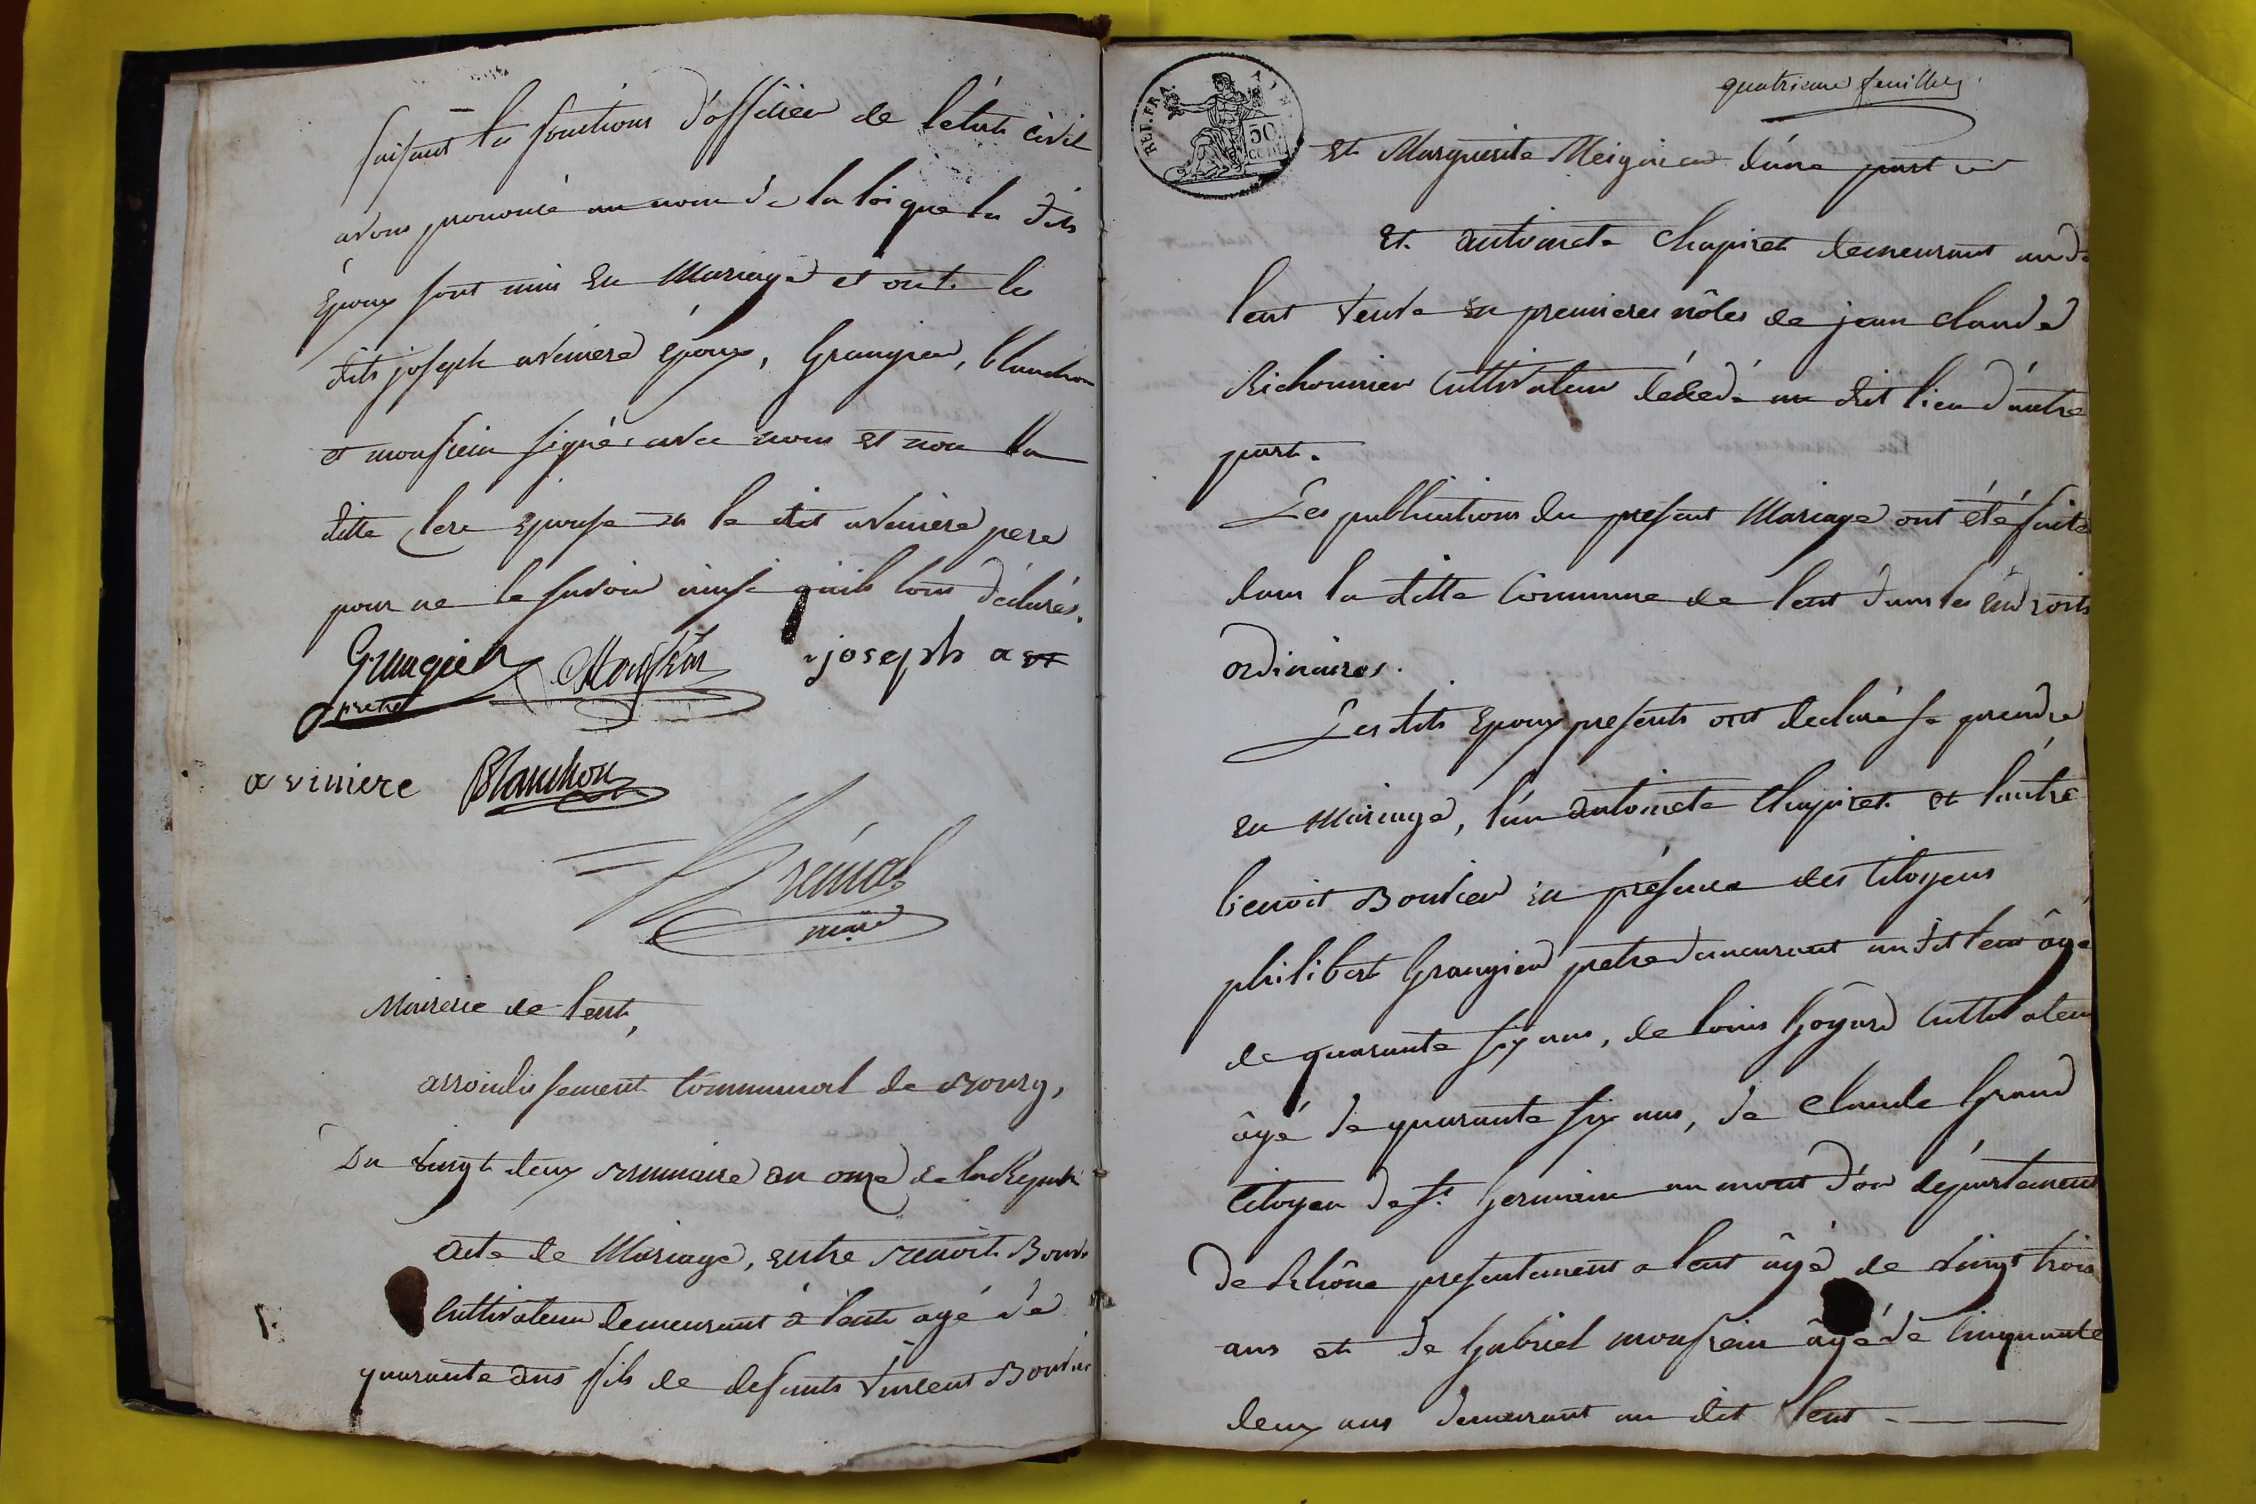 faisant les fonctions d'officier de l'etat civil
avons prononcé au nom de la loi que les dits
Epoux sont unis en Mariage et ont les
dits joseph aviniere époux, Grangier, blanchon
et monfrein signés avec nous et non la
ditte Epouse et le dit aviniere pere
pour ne le savoir ainsi qu'ils l'ont déclarés.
Grangier Monfrein joseph a
pretre
a viniere Blanchon
maire
Mairerie de lent,
arrondissement Communal de Bourg,
Du vingt deux Brumaire an onze de la Republi
Acte de Mariage, entre Benoit Bouv
Cultivateur demeurant à lent agé de
quarante ans fils de defunts Vincent Bouvie
quatrieme feuillet
REP. FRA.
50
CENT.
Et Marguerite d'une part
Et antoinete Chapiret demeurant au d.
lent veuve en premieres nôces de jean claude
Richonnier Cultivateur dècedé au dit lieu d'autre
part.
Les publications du present Mariage ont été faite
dans la ditte Commune de lent dans les Endroits
ordinaires.
Les dits Epoux presents ont declaré se prendre
en Mariage, l'un antoinete Chapiret et l'autre
benoit Bouvier en présence des Citoyens
philibert Grangier pretre demeurant au dit lent âgé
de quarante six ans, de louis Goyard Cultivateur
âgé de quarante six ans, de Claude Grand
Citoyen de St. Germain au mont d'or département
de Rhône presentement a lent âgé de vingt trois
ans et de Gabriel monfrein âgé de Cinquante
deux ans demeurant au dit lent